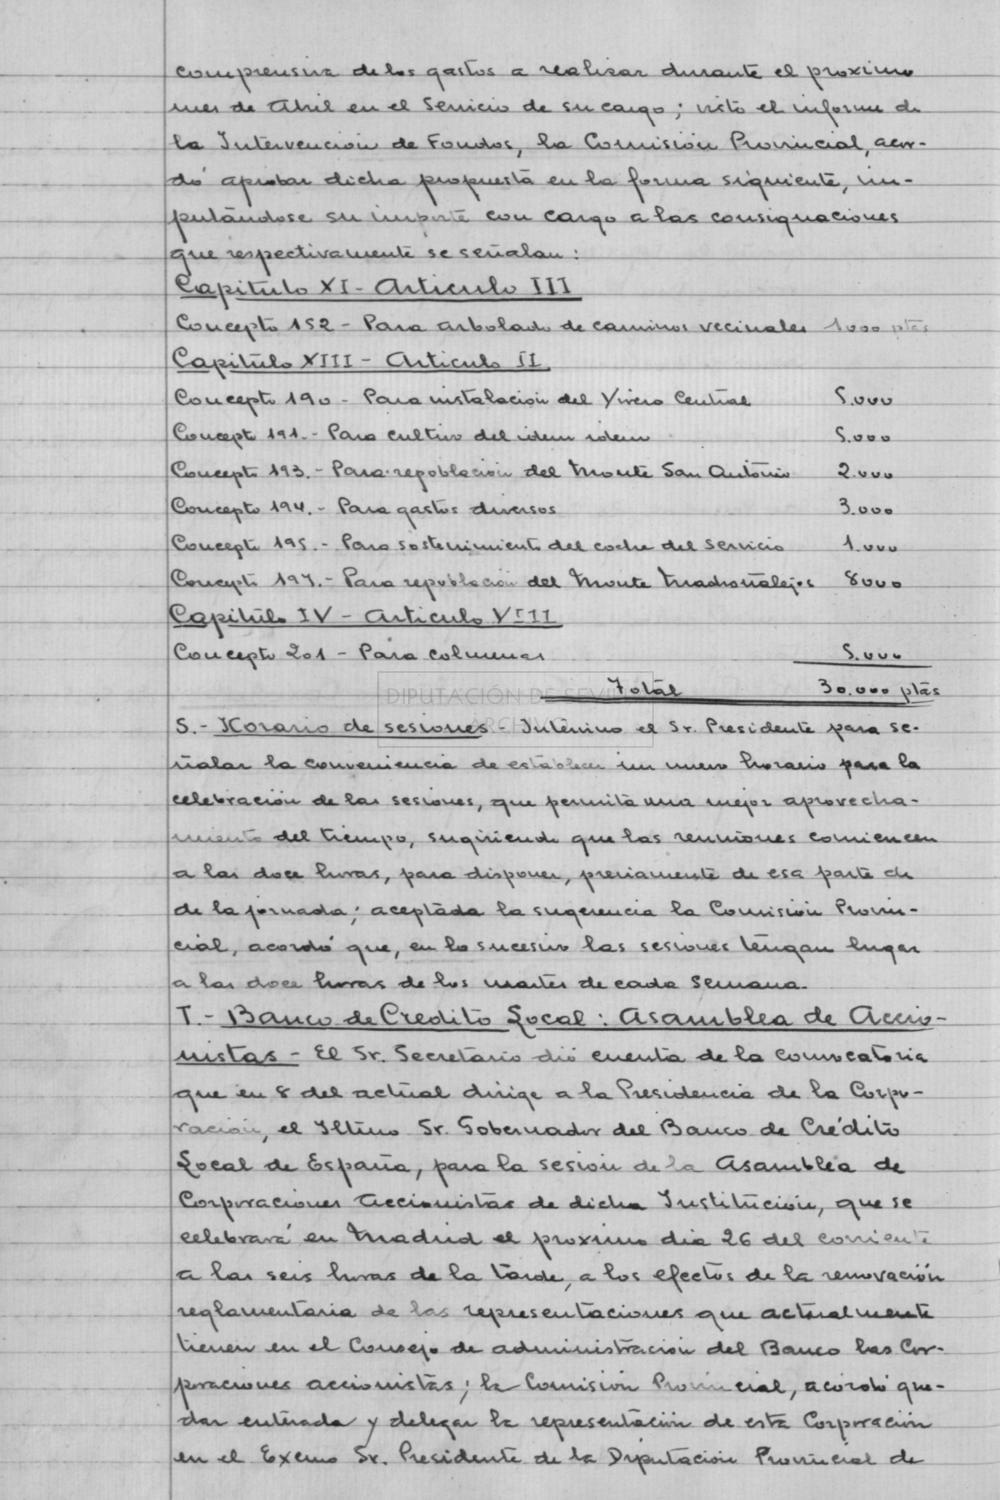 comprensiva de los gastos a realizar durante el proximo
mes de Abril en el Servicio de su cargo; visto el informe de
la Intervención de Fondos, la Comisión Provincial, acor-
dó aprobar dicha propuesta en la forma siguiente, im-
putándose su importe con cargo a las consignaciones
que respectivamente se señalan:
Capitulo XI - Articulo III
Concepto 152 - Para arbolado de caminos vecinales 1.000 ptas
Capitulo XIII - Articulo II
Concepto 190 - Para instalación del Vivero Central 5.000
Concepto 191.- Para cultivo del idem idem 5.000
Concepto 193.- Para repoblación del Monte San Antonio 2.000
Concepto 194.- Para gastos diversos 3.000
Concepto 195.- Para sostenimiento del coche del servicio 1.000
Concepto 197.- Para repoblación del Monte Madroñalejos 8000
Capitulo IV - Articulo VIII
Concepto 201 - Para colmenas 5.000
Total 30.000 ptas
DIPUTACIÓN DE SEVILLA
ARCHIVO
S.- Horario de sesiones - Intervino el Sr. Presidente para se-
ñalar la conveniencia de establecer un nuevo horario para la
celebración de las sesiones, que permita una mejor aprovecha-
miento del tiempo, sugiriendo que las reuniones comiencen
a las doce horas, para disponer, previamente de esa parte de
de la jornada; aceptada la sugerencia la Comisión Provin-
cial, acordó que, en lo sucesivo las sesiones tengan lugar
a las doce horas de los martes de cada semana.
T.- Banco de Credito Local: Asamblea de Accio-
nistas - El Sr. Secretario dió cuenta de la convocatoria
que en 8 del actual dirige a la Presidencia de la Corpo-
ración, el Iltmo Sr. Gobernador del Banco de Crédito
Local de España, para la sesión de la Asamblea de
Corporaciones accionistas de dicha Institución, que se
celebrará en Madrid el proximo dia 26 del corriente
a las seis horas de la tarde, a los efectos de la renovación
reglamentaria de las representaciones que actualmente
tienen en el Consejo de administración del Banco las Cor-
poraciones accionistas; la Comisión Provincial, acordó que-
dar enterada y delegar la representación de esta Corporación
en el Excmo Sr. Presidente de la Diputación Provincial de